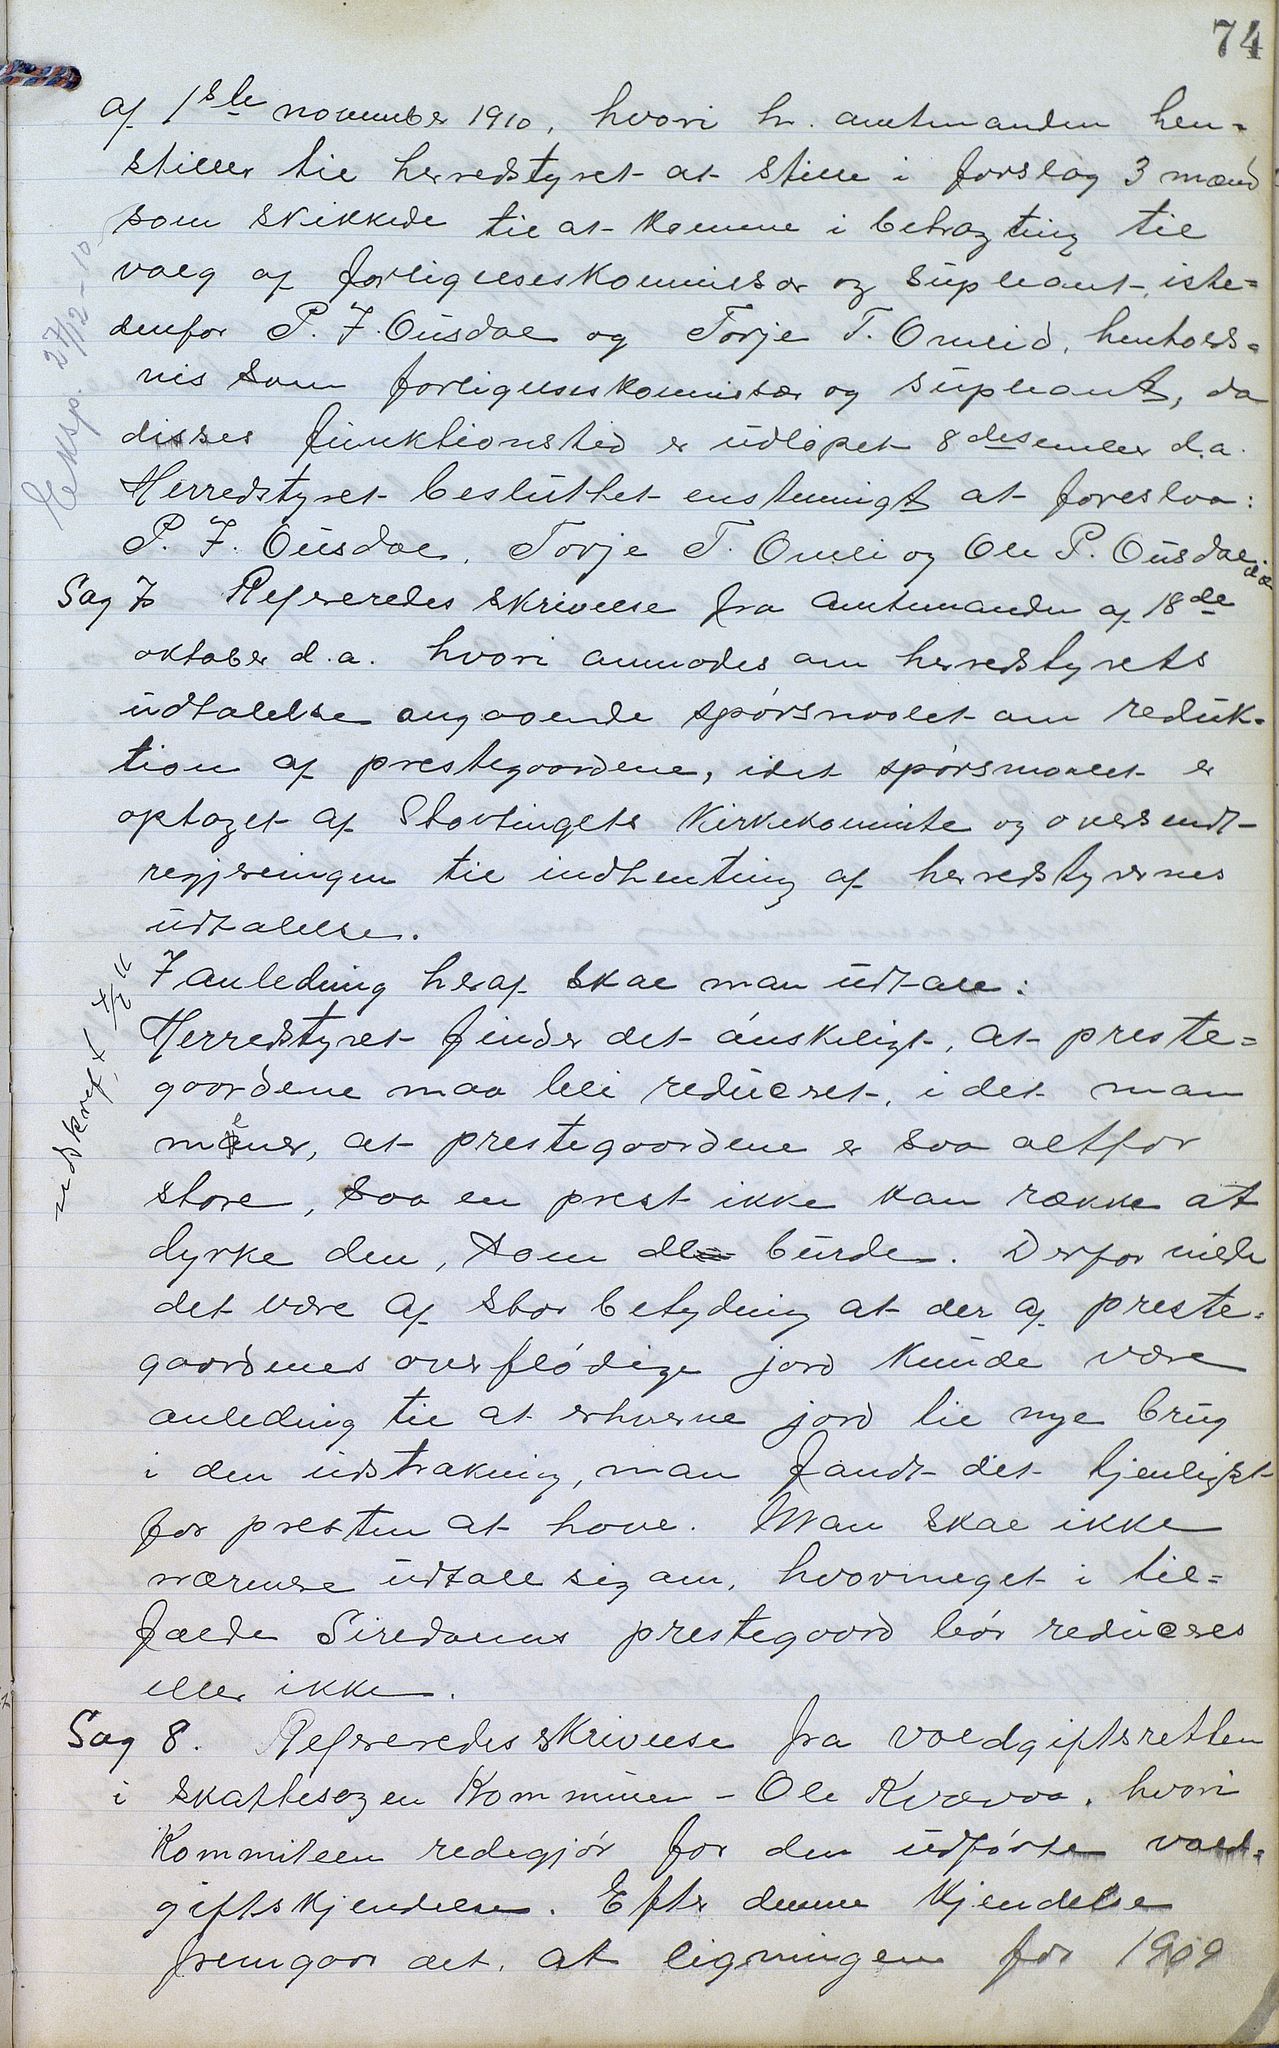 74
af 1ste november 1910, hvori hr. amtmanden hen-
stiller til herredstyret at stille i forslag 3 mænd
som skikkede til at komme i betragting til
valg af forligelseskommissær og supleant, iste-
denfor P. J. Ousdal og Torje T. Omlid, henholds-
vis som forligelseskommissær og supleant, da
disses funktionstid er udløpet 8 desember d.a.
Herredstyret besluttet enstemmigt at foreslaa:
P. J. Ousdal, Torje T. Omli og Ole P. Ousdal
Eksp. 27/12-10
Sag 7 Refereredes skrivelse fra amtmanden af 18de
oktober d.a. hvori anmodes om herredstyrets
udtalelse angaaende spørsmaalet om reduk-
tion af prestegaardene, idet spørsmaalet er
optaget af Stortingets Kirkekomite og oversendt
regjeringen til indhenting af herredstyrernes
udtalelse.
I anledning heraf skal man udtale:
Herredstyret finder det ønskeligt, at preste-
gaardene maa bli reduceret, i det man
mener, at prestegaardene er saa altfor
store, saa en prest ikke kan række at
dyrke den, som de burde. Derfor vilde
det være af stor betydning at der af preste-
gaardenes overflødige jord kunde være
anledning til at erhverve jord til nye brug
i den udstrækning, man fandt det tjenligst
for presten at have. Man skal ikke
nærmere udtale sig om, hvorvidt i til-
fælde Siredalens prestegaard bør reduceres
eller ikke.
udskrift 4/2 11
Sag 8. Refereredes skrivelse fra voldgiftsretten
i skattesagen Kommunen - Ole Kvævo, hvori
Kommiteen redegjør for den udførte vold-
giftskjendelse. Efter denne Kjendelse
fremgaar det, at ligningen for 1909